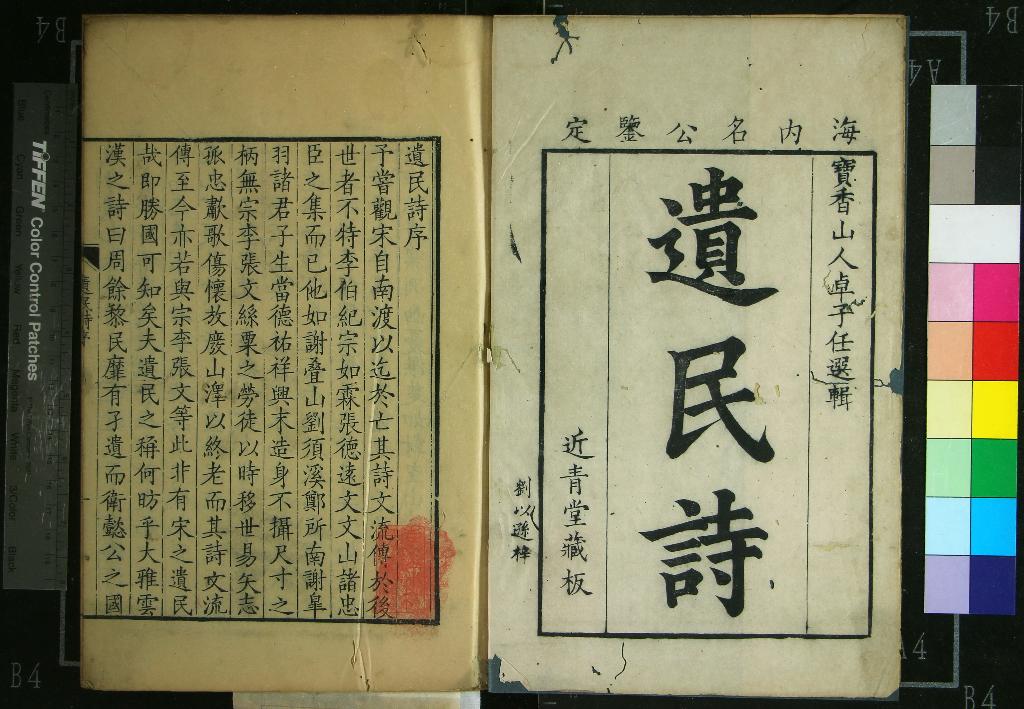 海内名公鑒定
寶香山人卓子任選輯
遺民詩
近青堂藏板
劉以遜梓
遺民詩序
予嘗觀宋自南渡以迄於亡其詩文流傳於後
世者不特李伯紀宗如霖張德遠文文山諸忠
臣之集而已他如謝疊山劉須溪鄭所南謝皐
羽諸君子生當德祐祥興末造身不攝尺寸之
柄無宗李張文絲粟之勞徒以時移世易矢志
孤忠歔歌傷懷放廢山澤以終老而其詩文流
傳至今亦若與宗李張文等此非有宋之遺民
哉即勝國可知矣夫遺民之稱何昉乎大雅雲
漢之詩曰周餘黎民靡有孑遺而衛懿公之國
遺民詩序
TIFFEN Color Control Patches
Blue
Cyan
Green
Yellow
Red
Magenta
White
3/Color
Black
B4
B4
A4
A4
B4
B4